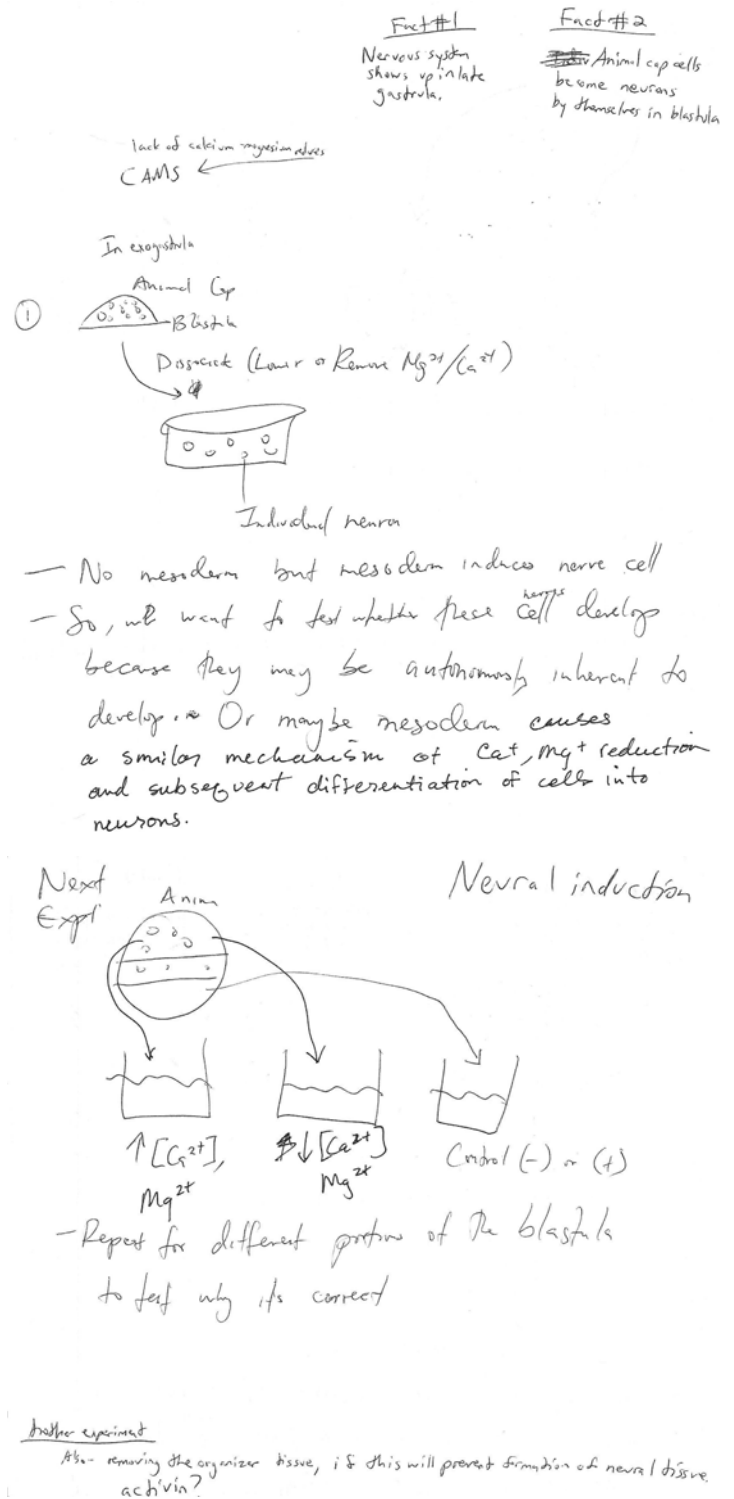 Fact #1
Nervous system
shows up in late
gastrula.
Fact #2
Animal cap cells
become neurons
by themselves in blastula
lack of calcium magnesium
CAMS
In exogastrula
Animal Cap
①
Blastula
Dissociate (Lower or Remove Mg²⁺/Ca²⁺)
Individual neuron
— No mesoderm but mesoderm induces nerve cell
— So, we want to test whether these nerve cell develop
because they may be autonomously inherent to
develop. Or maybe mesoderm causes
a similar mechanism of Ca⁺, Mg⁺ reduction
and subsequent differentiation of cells into
neurons.
Next
Expt
Neural induction
Anima
↑[Ca²⁺],
Mg²⁺
↓[Ca²⁺]
Mg²⁺
Control (-) or (+)
- Repeat for different portions of the blastula
to test why it's correct
Another experiment
Also- removing the organizer tissue, if this will prevent formation of neural tissue.
activin?